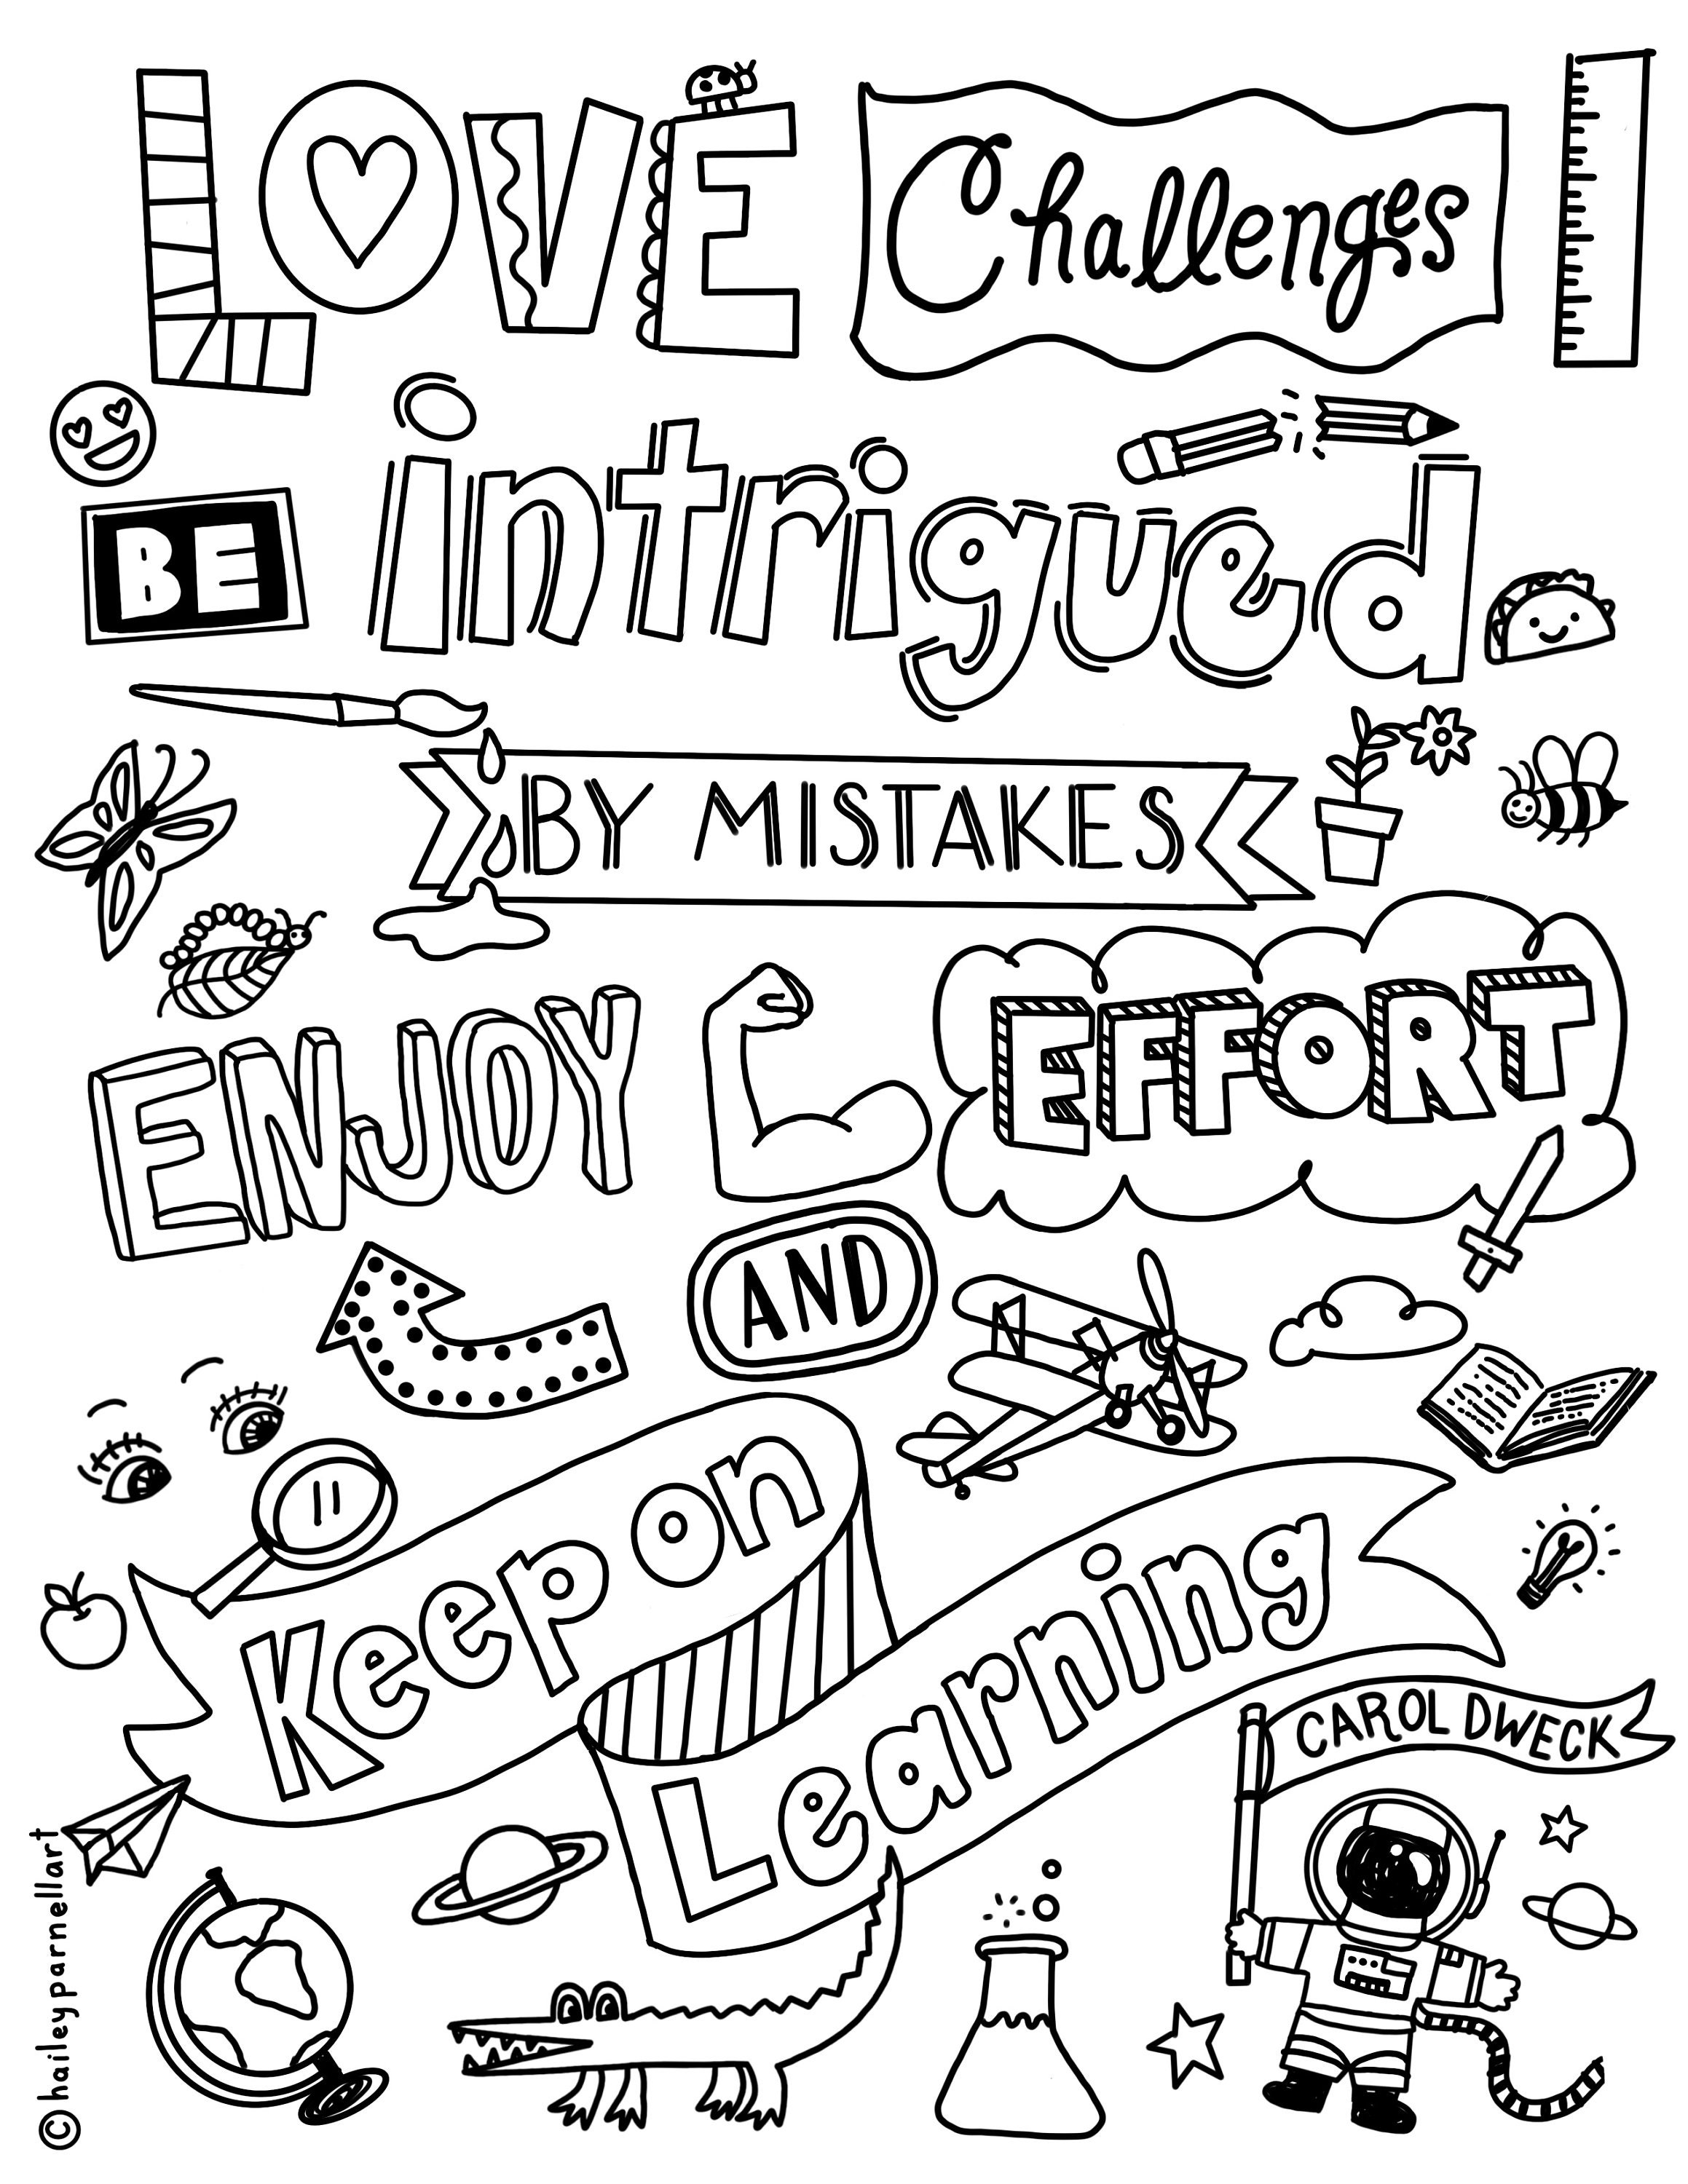 LOVE Challenges
BE intrigued
BY MISTAKES
ENJOY EFFORT
AND
Keep on
Learning
CAROL DWECK
©haileyparnellart